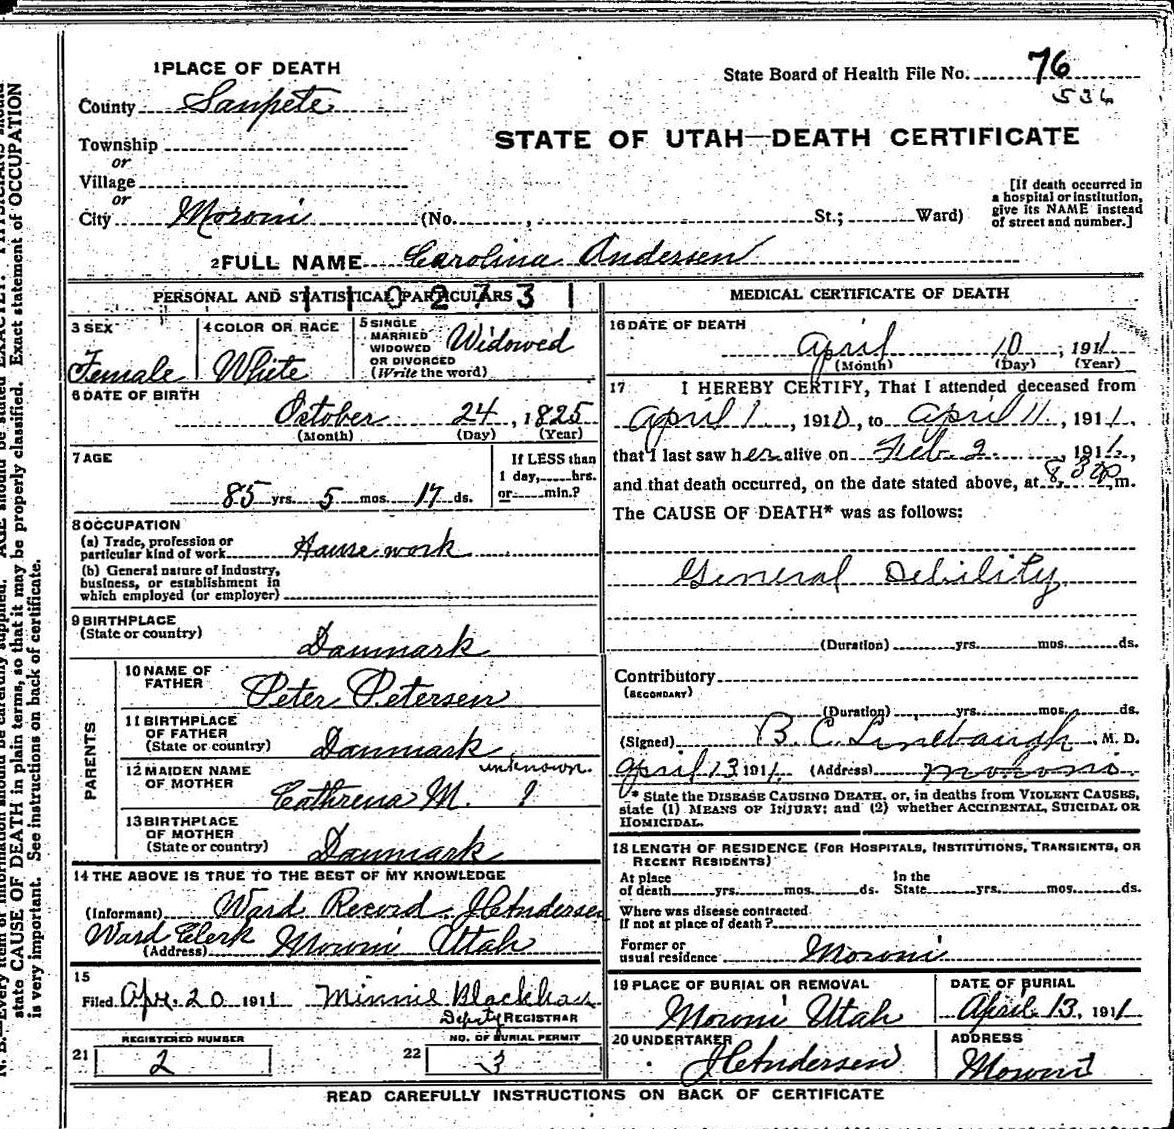 1 PLACE OF DEATH
County Sanpete
Township
or
Village
or
City Moroni (No. , St.; Ward)
State Board of Health File No. 76
536
STATE OF UTAH—DEATH CERTIFICATE
[If death occurred in
a hospital or institution,
give its NAME instead
of street and number.]
2 FULL NAME Carolina Andersen
PERSONAL AND STATISTICAL PARTICULARS
3 SEX
Female
4 COLOR OR RACE
White
5 SINGLE
MARRIED
WIDOWED
OR DIVORCED
(Write the word)
Widowed
6 DATE OF BIRTH
October 24, 1825
(Month) (Day) (Year)
7 AGE
85 yrs. 5 mos. 17 ds.
If LESS than
1 day, hrs.
or min.?
8 OCCUPATION
(a) Trade, profession or
particular kind of work House work
(b) General nature of industry,
business, or establishment in
which employed (or employer)
9 BIRTHPLACE
(State or country)
Danmark
PARENTS
10 NAME OF
FATHER
Peter Petersen
11 BIRTHPLACE
OF FATHER
(State or country)
Danmark
12 MAIDEN NAME
OF MOTHER
unknown
Cathrena M. ?
13 BIRTHPLACE
OF MOTHER
(State or country)
Danmark
14 THE ABOVE IS TRUE TO THE BEST OF MY KNOWLEDGE
(Informant) Ward Record. J C Andersen
Ward Clerk
(Address) Moroni Utah
15
Filed Apr. 20 1911 Minnie Blackham
Deputy REGISTRAR
REGISTERED NUMBER
21 2
NO. OF BURIAL PERMIT
22 3
MEDICAL CERTIFICATE OF DEATH
16 DATE OF DEATH
April 10, 1911
(Month) (Day) (Year)
17 I HEREBY CERTIFY, That I attended deceased from
April 1, 1910, to April 11, 1911,
that I last saw her alive on Feb. 2, 1911,
and that death occurred, on the date stated above, at 8,30 p m.
The CAUSE OF DEATH* was as follows:
General Debility
(Duration) yrs. mos. ds.
Contributory
(SECONDARY)
(Duration) yrs. mos. ds.
(Signed) B. C. Linebaugh, M. D.
April 13 1911 (Address) Moroni
* State the DISEASE CAUSING DEATH, or, in deaths from VIOLENT CAUSES,
state (1) MEANS OF INJURY; and (2) whether ACCIDENTAL, SUICIDAL OR
HOMICIDAL.
18 LENGTH OF RESIDENCE (FOR HOSPITALS, INSTITUTIONS, TRANSIENTS, OR
RECENT RESIDENTS)
At place
of death yrs. mos. ds.
In the
State yrs. mos. ds.
Where was disease contracted
If not at place of death?
Former or
usual residence Moroni
19 PLACE OF BURIAL OR REMOVAL
Moroni Utah
DATE OF BURIAL
April 13, 1911
20 UNDERTAKER
J C Andersen
ADDRESS
Moroni
READ CAREFULLY INSTRUCTIONS ON BACK OF CERTIFICATE
state CAUSE OF DEATH in plain terms, so that it may be properly classified. Exact statement of OCCUPATION
is very important. See instructions on back of certificate.